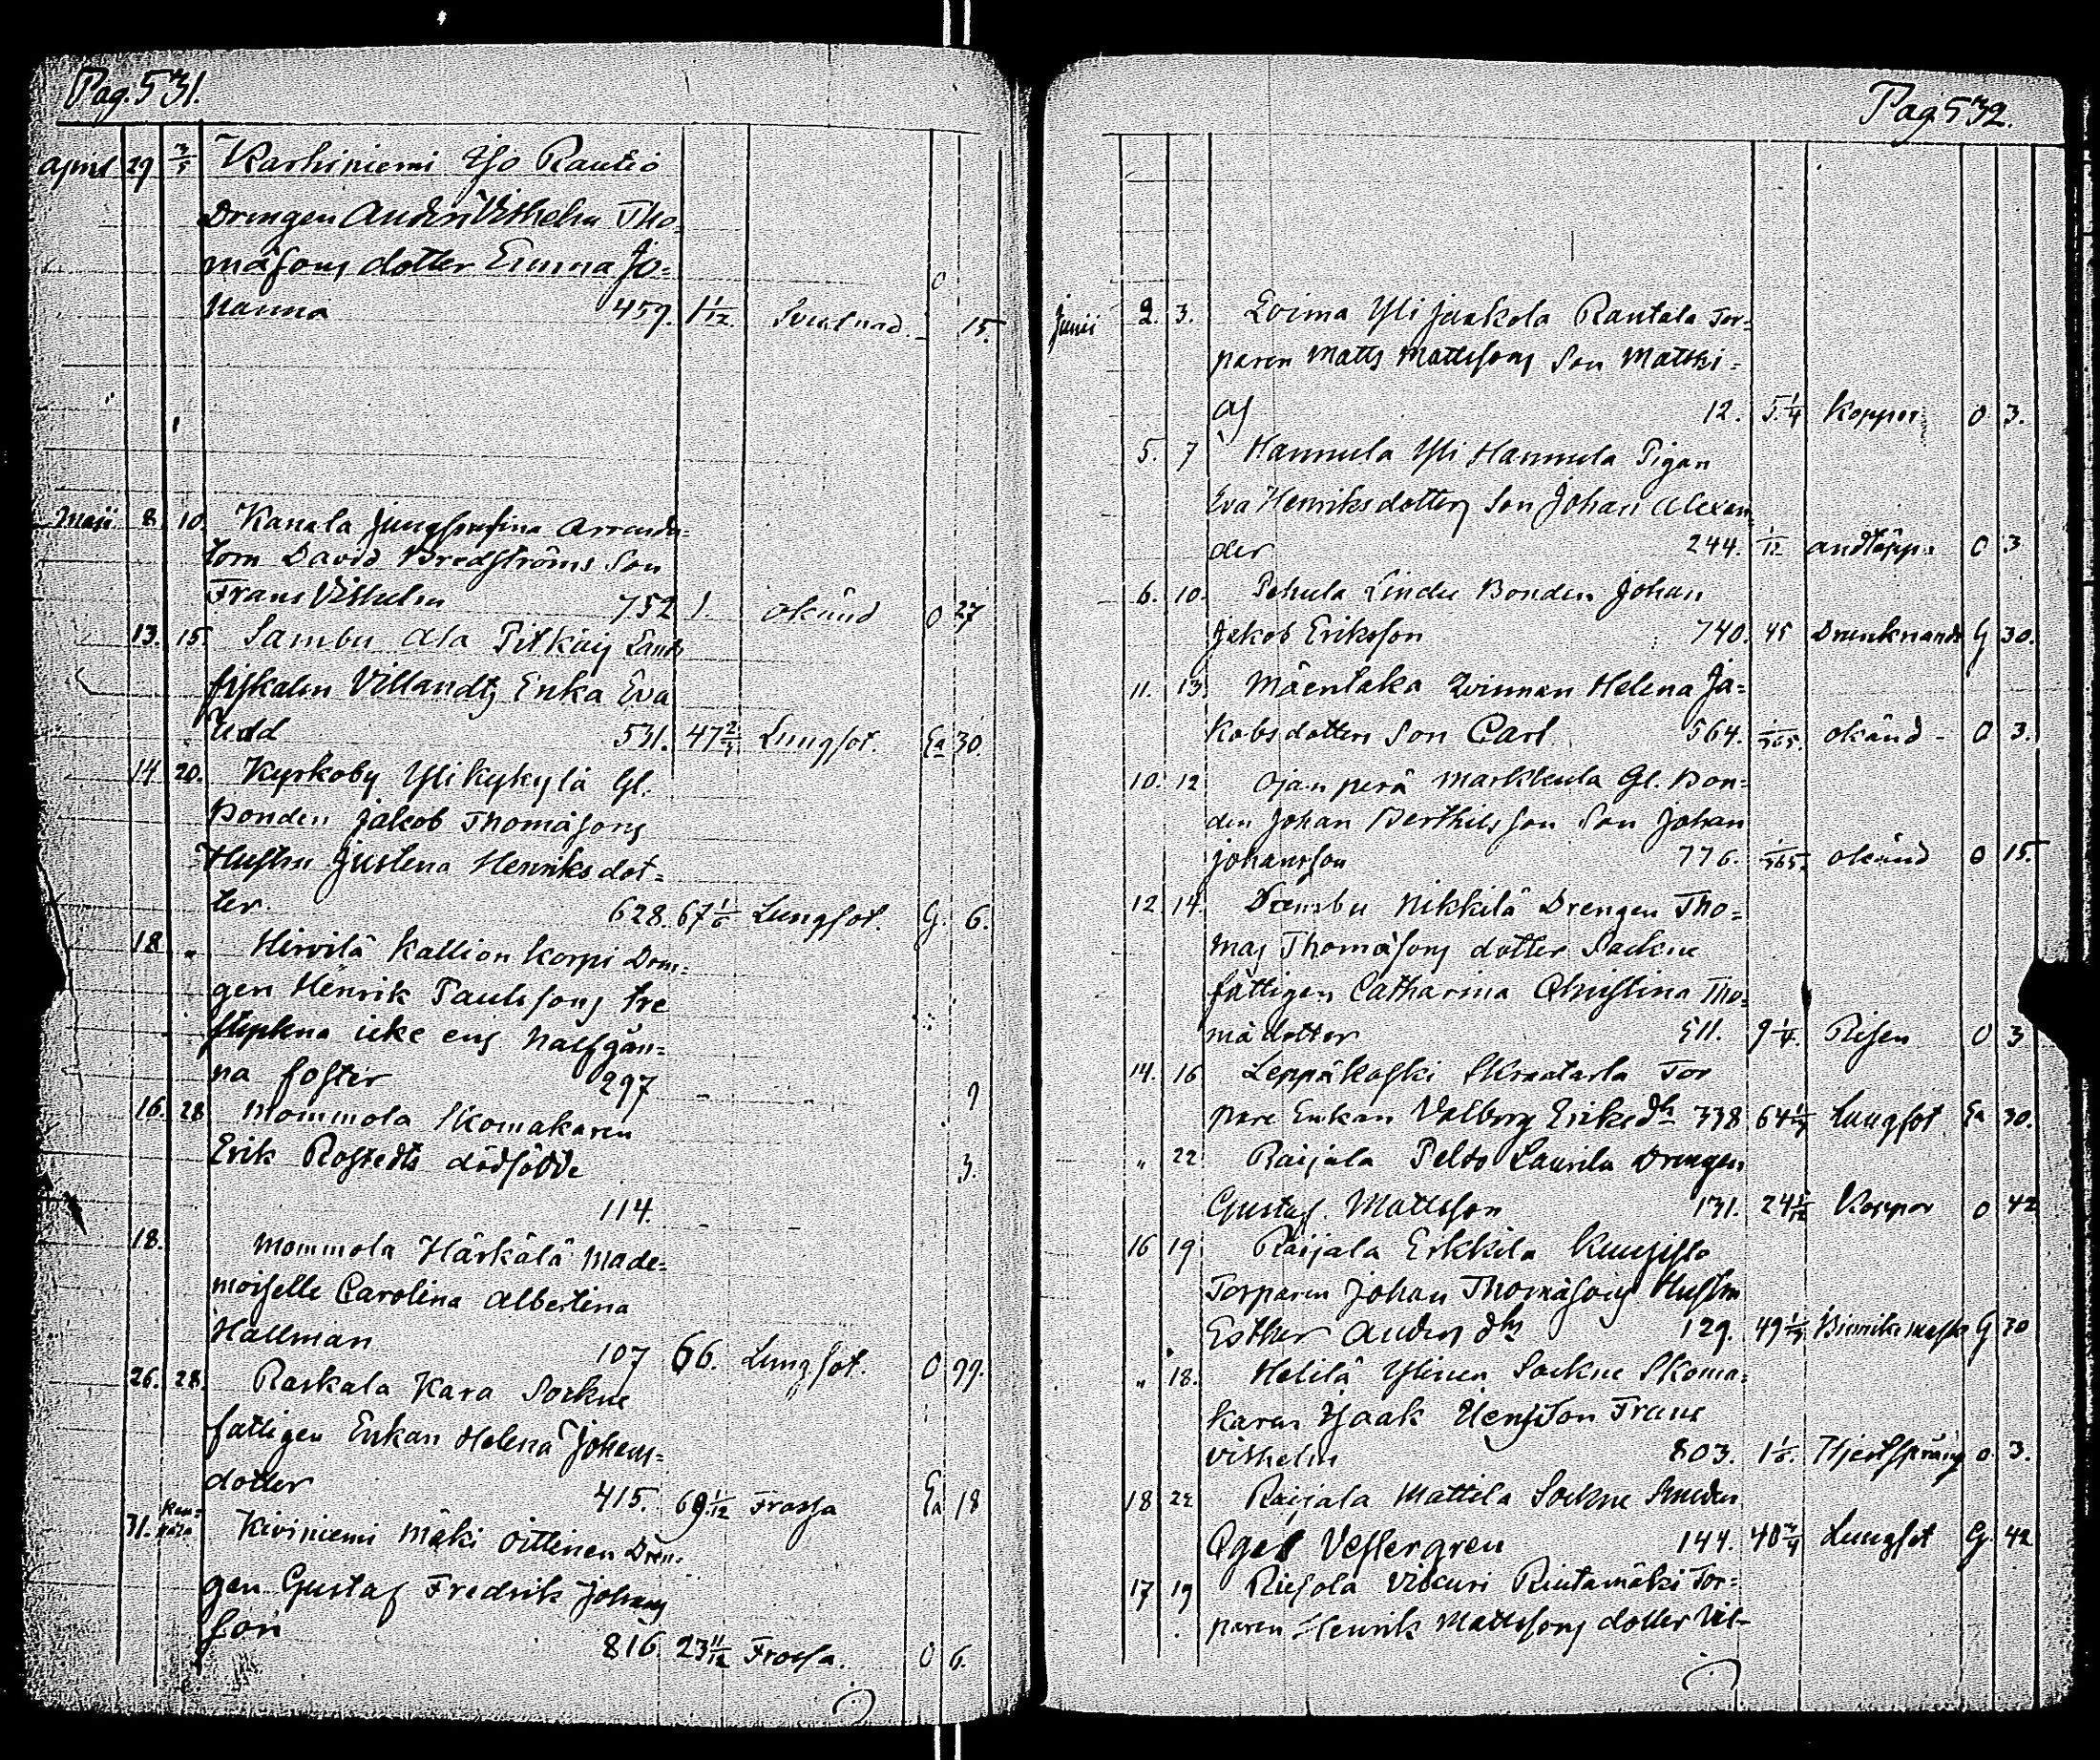 Pag. 531.
April 29 3/5 Karhiniemi Yso Rautio
Drengen Anders Vilhelm Tho-
mæsons dotter Emma Jo-
hanna 459. 1 1/12. O 15.
Maji 8. 10. Kanala Arrenda-
torn David Bredströms Son
Frans Vilhelm 752 1. okänd O 27
13. 15. Sambu Ala Pitkäis Lands
fiskalen Villandts Enka Eva
Udd 531. 47 Lungsot. Ea 30
14. 20. Kyrkoby Ylikykylä Gl.
Bonden Jakob Thomæsons
Hustru Justena Henriksdot-
ter. 628. 67 1/6 Lungsot. G. 6.
18. " Hirvilä Kallionkorpi Dren-
gen Henrik Paulssons tre
stycken icke ens halfgån-
na foster 297 9
16. 28 Mommola Skomakaren
Erik Rostedts dödfödde 3.
114.
18. Mommola Härkälä Made-
moiselle Carolina Albertina
Hallman 107 66. Lungsot. O 99.
26. 28. Raskala Kara Sockne
fattigen Enkan Helena Johans-
dotter 415. 69 1/12 Frossa Ea 18
31. Kiviniemi Mäki Oittinen Dren-
gen Gustaf Fredrik Johans
son 816. 23 11/12 Frossa. O 6.
Pag. 532.
Junii 2. 3. Loima Yli Jaakola Rantala Tor-
paren Matts Mattssons Son Matthi-
as 12. 5 1/4 Koppor O 3.
5. 7 Hannula Yli Hannula Pigan
Eva Henriksdotters Son Johan Alexan
der 244. 1/12 andtäppa O 3
6. 10. Pehula Linda Bonden Johan
Jakob Eriksson 740. 45 Drunknande G 30.
11. 13. Mäentaka Qvinnan Helena Ja-
kobsdotters Son Carl 564. 1/365. okänd - O 3.
10. 12 Ojanperä Markkula Gl. Bon-
den Johan Berthilsson Son Johan
Johansson 776. 1/365. okänd O 15.
12. 14. Nikkilä Drengen Tho-
mas Thomæsons dotter Sockne
fattigen Catharina Christina Tho-
mædotter 511. 9 1/4. Risen O 3
14. 16 Leppäkoski Skraatarla Tor
pare Enkan Valborg Eriksdr 338 64 Lungsot Ea 30.
" 22 Raijala Pelto Laurila Drengen
Gustaf Mattsson 131. 24 1/12 Koppor O 42
16 19 Raijala Erkkila Kuusisto
Torparen Johan Thomæsons Hustru
Esther Anders drs 129. 49 G 30
" 18. Helilä Ylinen Sockne Skoma-
karen Isaak Son Frans
Vilhelm 803. 1 1/6. Hjertspräng O. 3.
18 22 Raijala Mattila Sockne Smeden
Vestergren 144. 40 3/4 Lungsot G. 42
17 19 Riesola Viikuri Rintamäki Tor-
paren Henrik Mattssons dotter Vil-